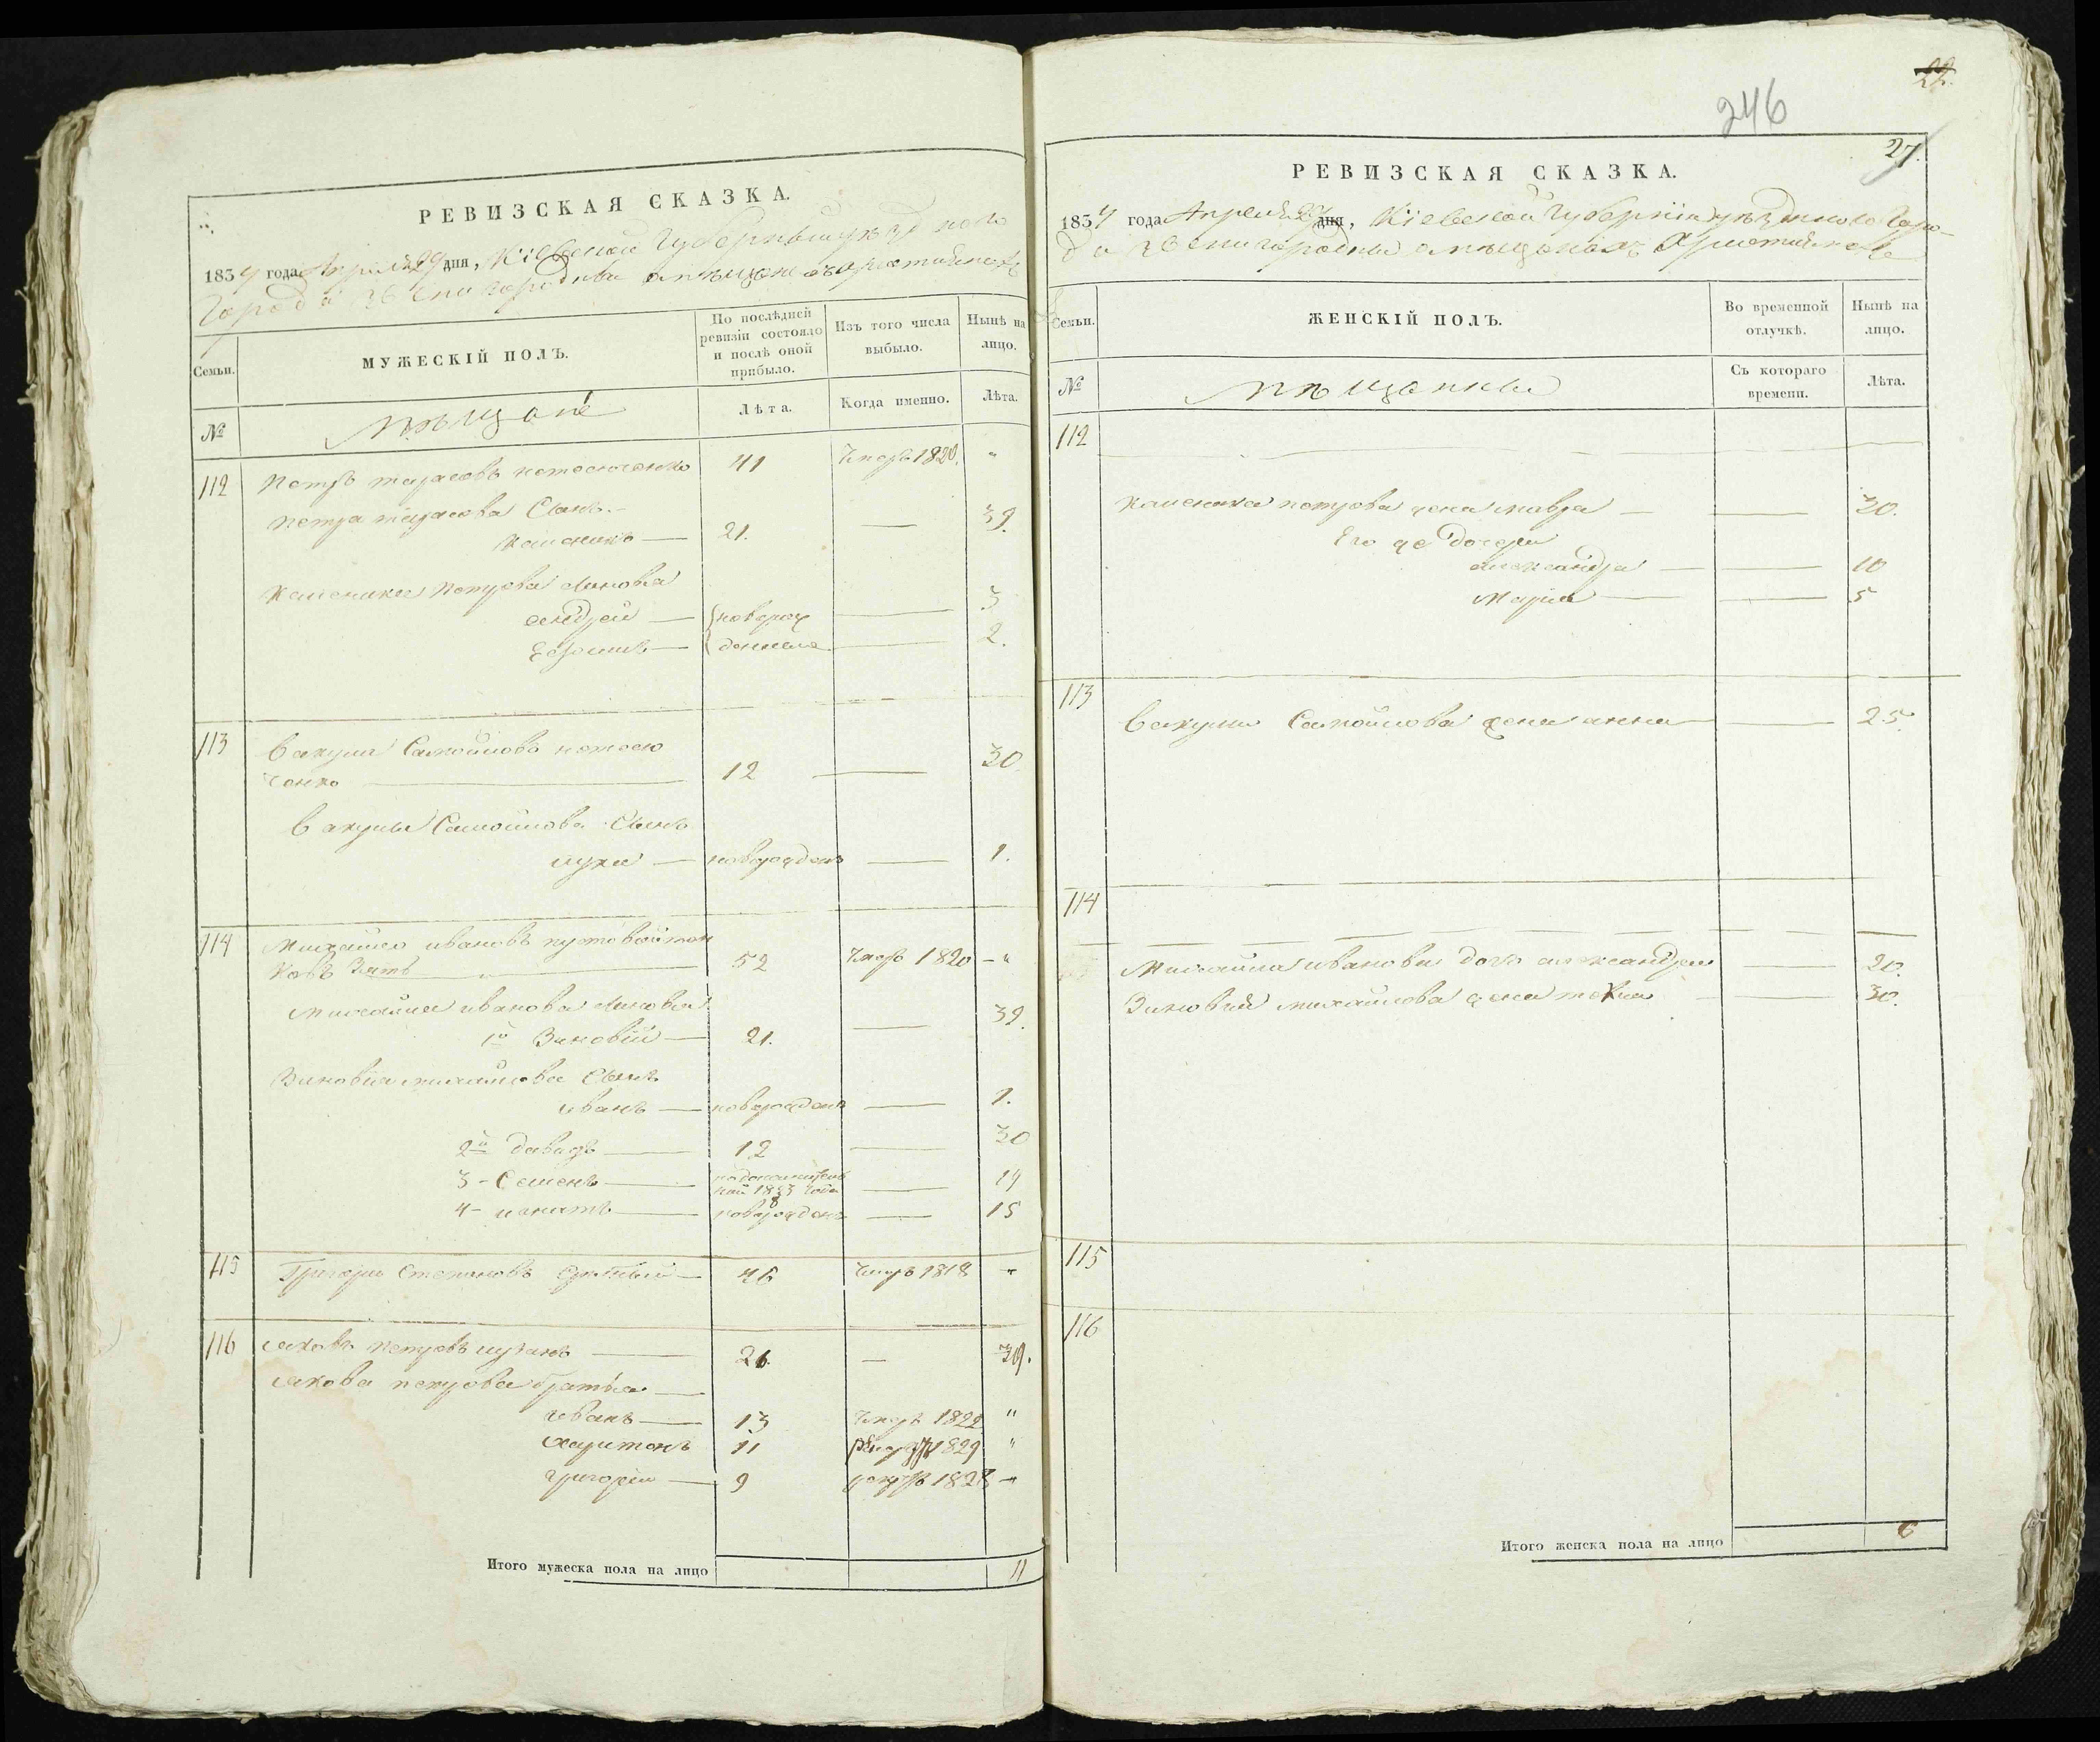 РЕВИЗСКАЯ СКАЗКА.
1834 года Апреля 29 дня, Кіевской Губерніи уѣздного
Города Звенигородки о мѣщанахъ христіянахъ
Семьи.
МУЖЕСКІЙ ПОЛЪ.
По послѣдней ревизіи состояло и послѣ оной прибыло.
Изъ того числа выбыло.
Нынѣ на лицо.
№
Мѣщане
Лѣта.
Когда именно.
Лѣта.
112 Петръ тарасовъ 41 Умеръ 1820. "
Петра тарасова Сынъ
21. — 39.
Петрова Сыновья
андрей — новорож — 3
— денные — 2.
113 Вакула Самойловъ
ченко — 12 — 30.
Вакулы Самойлова Сынъ
лука — новорожденъ — 1.
114 Михайло ивановъ
Зять 52 Умеръ 1820 — "
Михайла иванова Сыновья
1й Зиновій — 21. — 39.
Зиновія михайлова Сынъ
иванъ — новорожденъ — 1.
2й давидъ — 12 — 30
3 — Семенъ — 19
4 — игнатъ — новорожденъ — 15
115 Григорій Степановъ — 46 Умеръ 1818 "
116 Яковъ Петровъ — 21. — 39.
Якова петрова братья —
иванъ — 13 Умеръ 1822 "
харитонъ 11 1829 "
григорій — 9 1828 — "
Итого мужеска пола на лицо 11
22.
246
27.
РЕВИЗСКАЯ СКАЗКА.
1834 года Апреля 29 дня, Кіевской Губерніи уѣздного Горо-
да Звенигородки о мѣщанахъ христіянахъ
Семьи.
ЖЕНСКІЙ ПОЛЪ.
Во временной отлучкѣ.
Нынѣ на лицо.
№
Мѣщанки
Съ котораго времени.
Лѣта.
112
петрова жена мавра — 30.
Его же дочери
александра — 10
Марія — 5
113
Вакулы Самойлова жена анна — 25.
114
Михайла иванова дочь александра — 20.
Зиновія михайлова жена — 30.
115
116
Итого женска пола на лицо 6